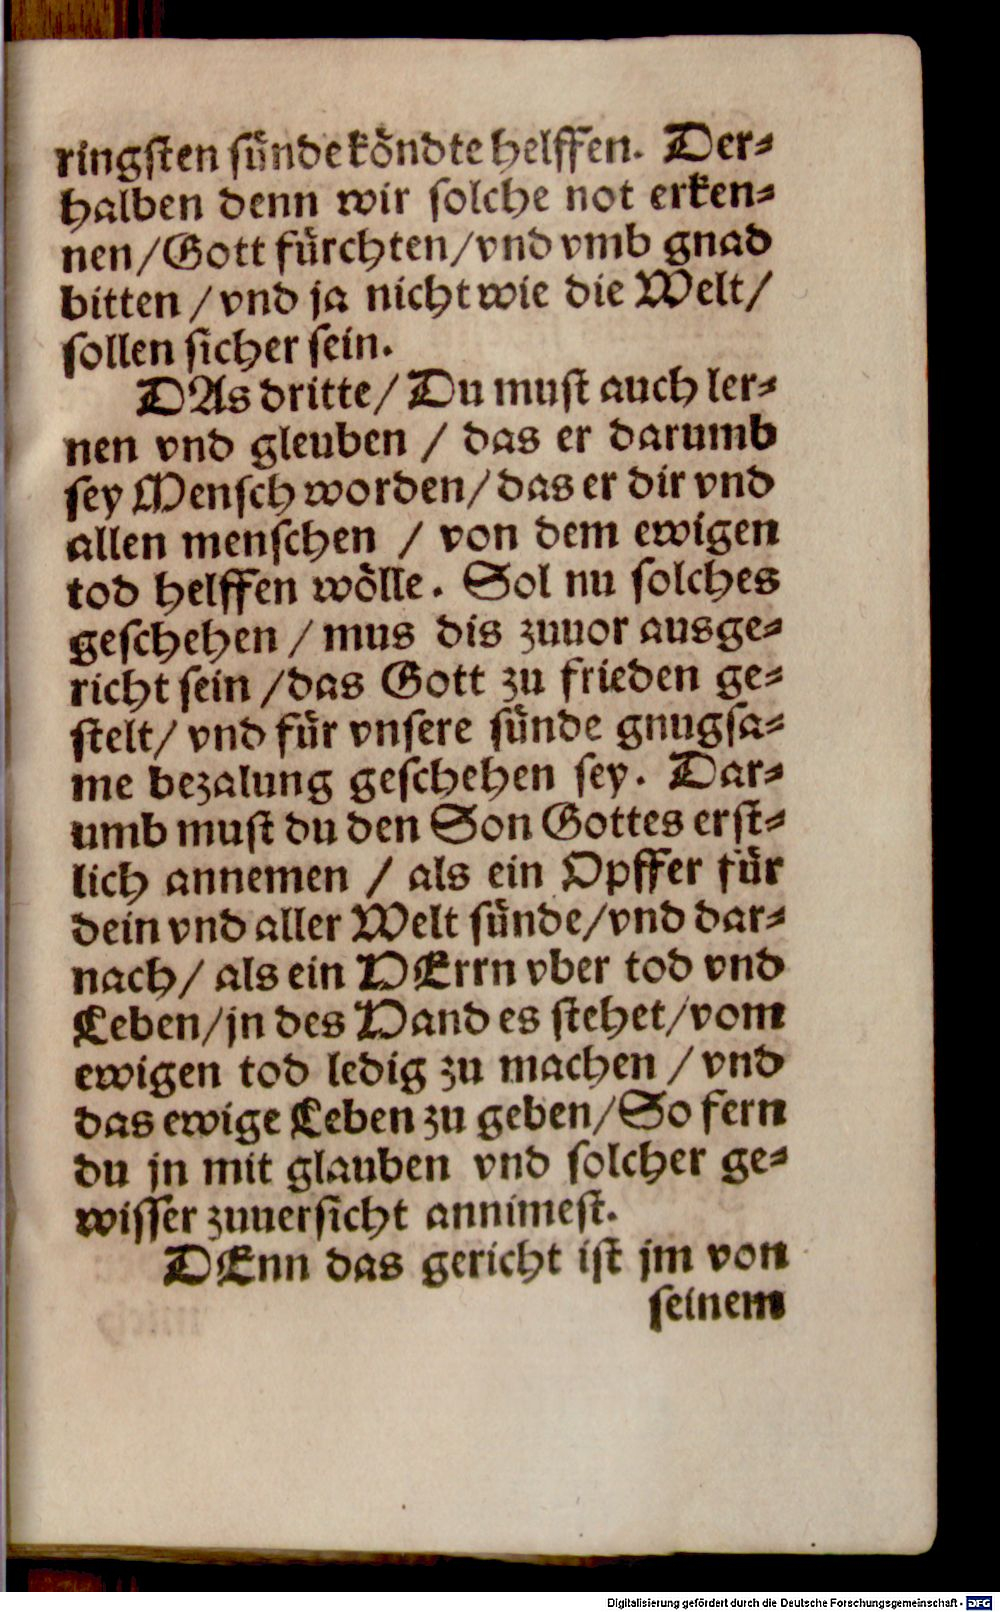 ringsten sünde köndte helffen. Der⸗
halben denn wir solche not erken⸗
nen/Gott fürchten/vnd vmb gnad
bitten / vnd ja nicht wie die Welt/
sollen sicher sein.
DAs dritte/ Du must auch ler⸗
nen vnd gleuben / das er darumb
sey Mensch worden/ das er dir vnd
allen menschen / von dem ewigen
tod helffen wölle. Sol nu solches
geschehen / mus dis zuuor ausge⸗
richt sein /das Gott zu frieden ge⸗
stelt/ vnd für vnsere sünde gnugsa⸗
me bezalung geschehen sey. Dar⸗
umb must du den Son Gottes erst⸗
lich annemen / als ein Opffer für
dein vnd aller Welt sünde/vnd dar⸗
nach/ als ein HErrn vber tod vnd
Leben/jn des Hand es stehet/vom
ewigen tod ledig zu machen / vnd
das ewige Leben zu geben/ So fern
du jn mit glauben vnd solcher ge⸗
wisser zuuersicht annimest.
DEnn das gericht ist jm von
seinem
Digitalisierung gefördert durch die Deutsche Forschungsgemeinschaft - DFG